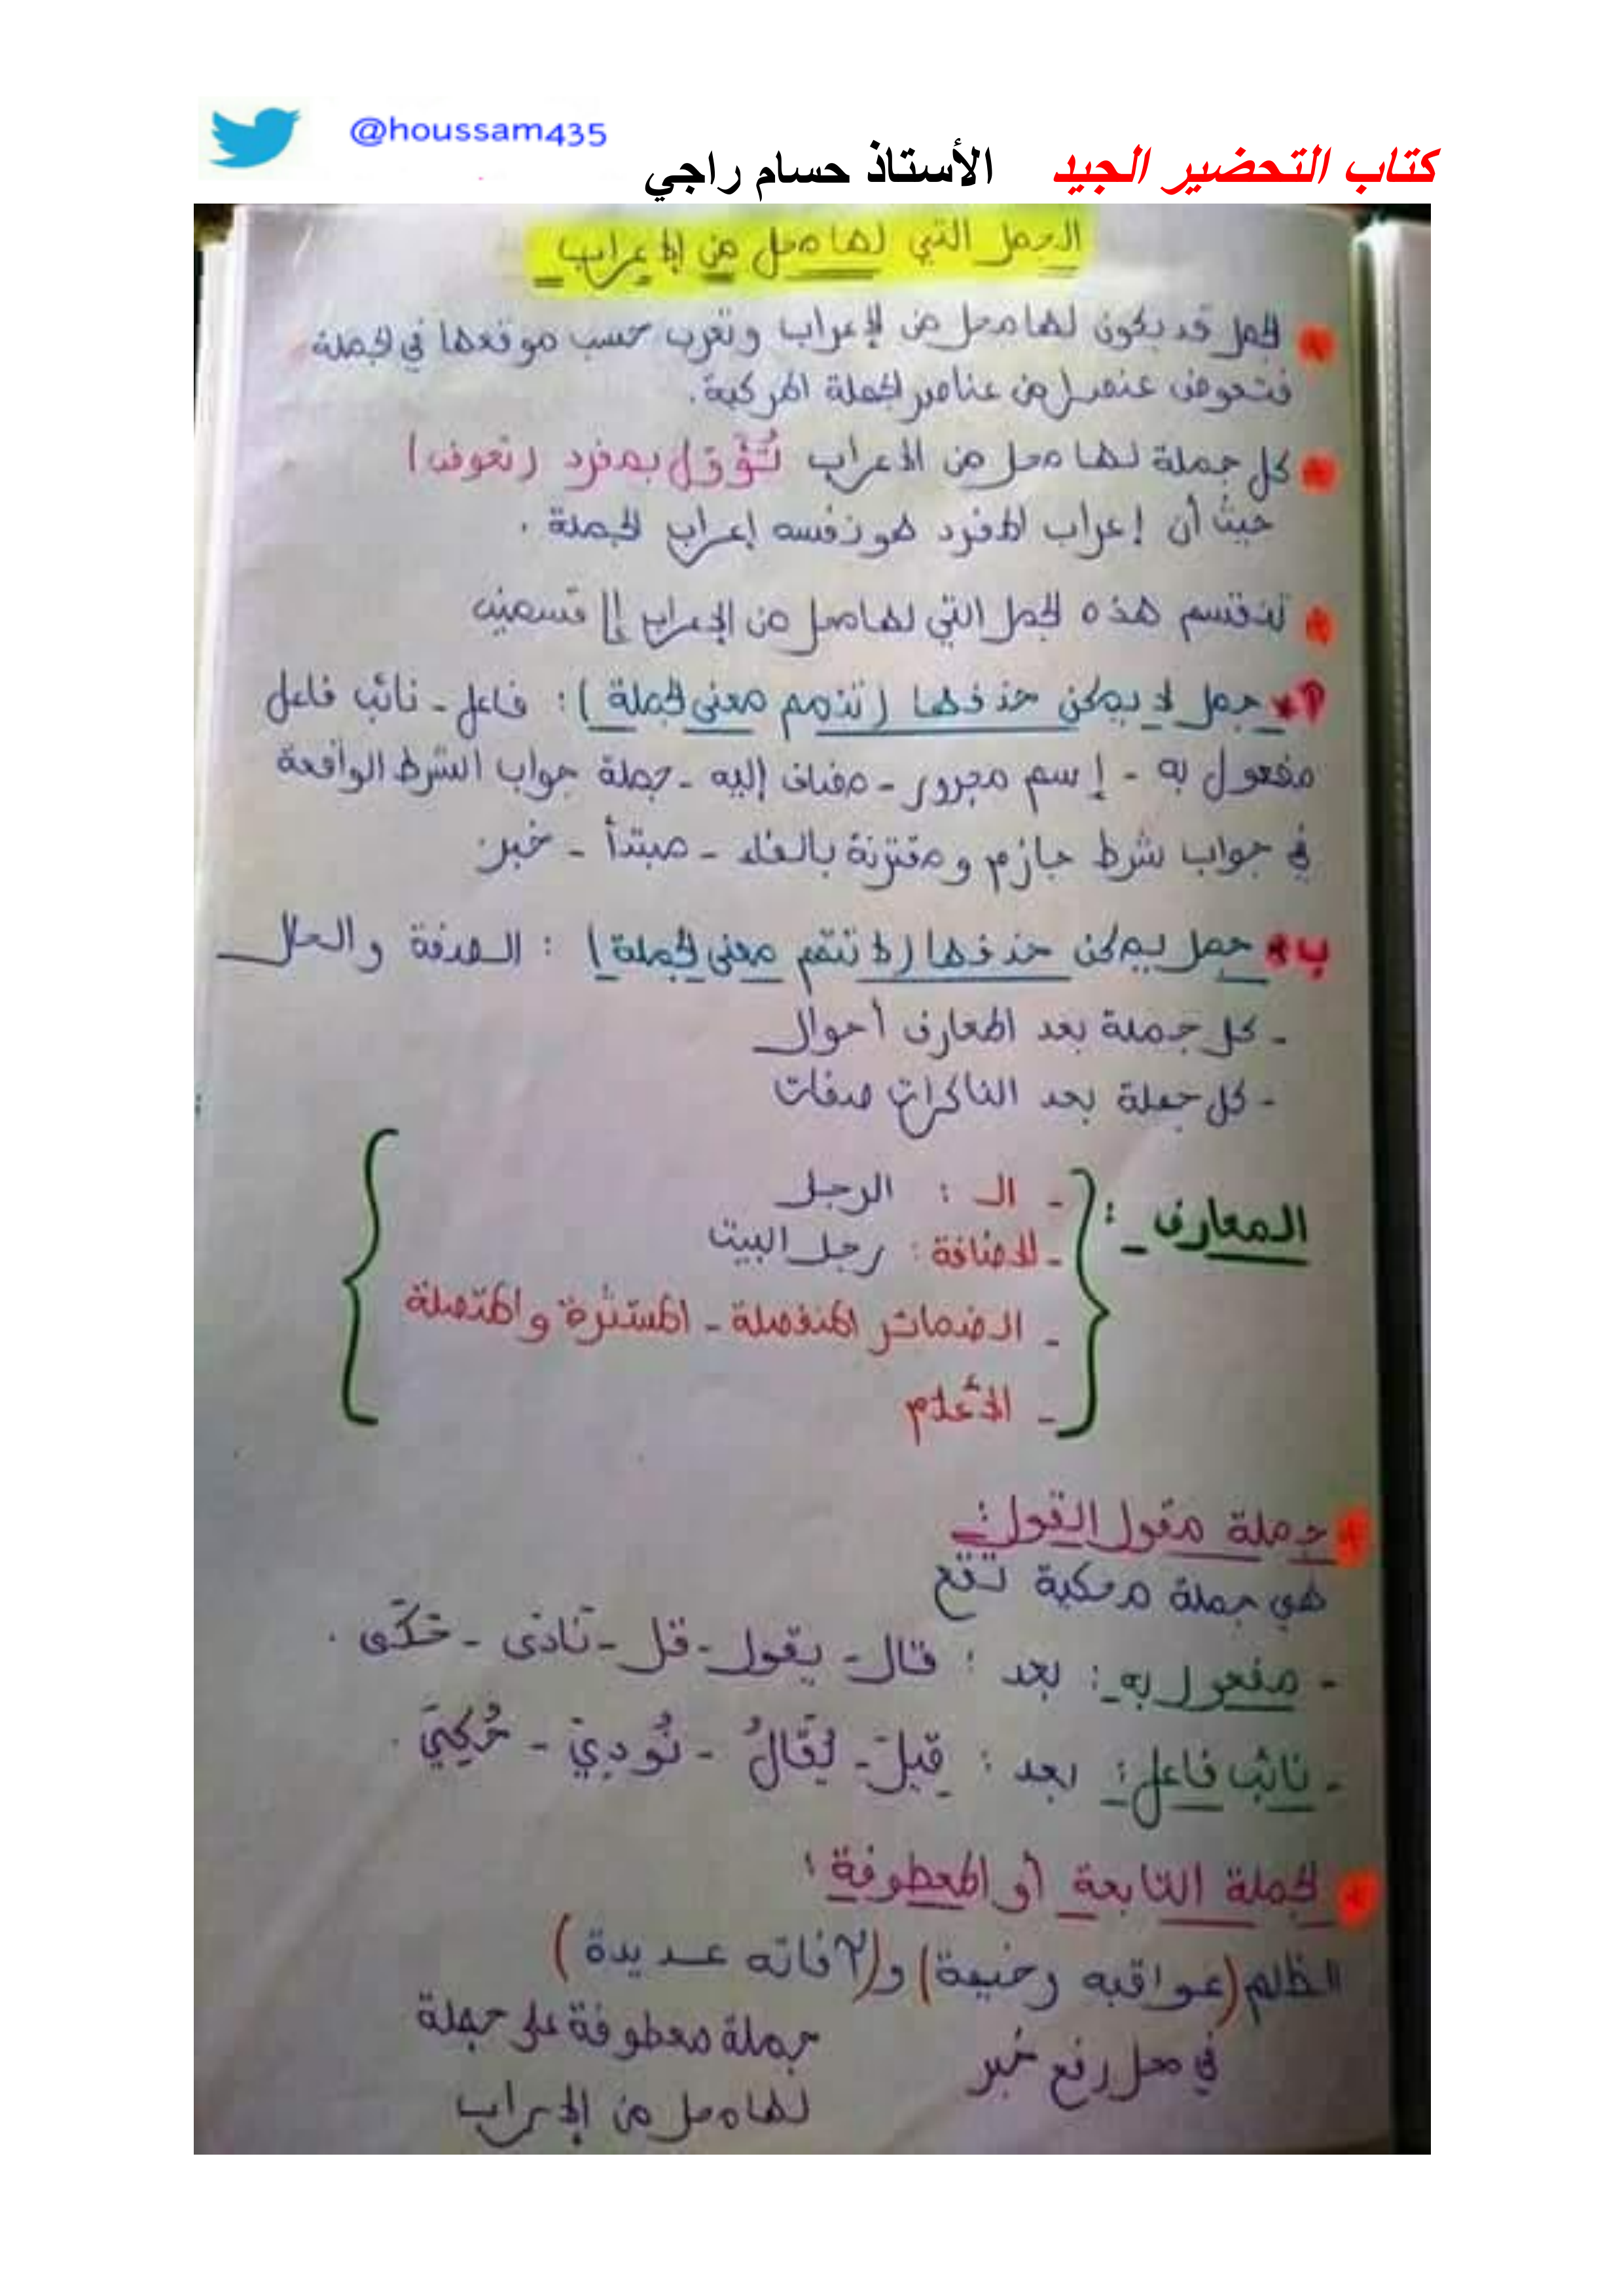 @houssam435
كتاب التحضير الجيد الأستاذ حسام راجي
الجمل التي لها محل من الإعراب
الجمل قد يكون لها محل من الإعراب وتعرب حسب موقعها في الجملة
فتعوض عنصرا من عناصر الجملة المركبة.
كل جملة لها محل من الإعراب تُؤوّل بمفرد (تعوض)
حيثُ أن إعراب المفرد هو نفسه إعراب الجملة.
تنقسم هذه الجمل التي لها محل من الإعراب إلى قسمين
أ* جمل لا يمكن حذفها (تتمم معنى الجملة): فاعل - نائب فاعل
مفعول به - إسم مجرور - مضاف إليه - جملة جواب الشرط الواقعة
في جواب شرط جازم ومقترنة بالفاء - مبتدأ - خبر
ب* جمل يمكن حذفها (لا تتمم معنى الجملة): الصفة والحال
- كل جملة بعد المعارف أحوال
- كل جملة بعد الناكرات صفات
المعارف:
- الـ: الرجل
- الإضافة: رجل البيت
- الضمائر المنفصلة - المستترة والمتصلة
- الأعلام
جملة مقول القول:
هي جملة محكية تقع
- مفعول به: بعد: قال - يقول - قل - نَادَى - حَكَى.
- نائب فاعل: بعد: قِيلَ - يُقَالُ - نُودِيَ - حُكِيَ.
الجملة التابعة أو المعطوفة:
الظلم (عواقبه وخيمة) و(آفاته عديدة)
في محل رفع خبر
جملة معطوفة على جملة
لها محل من الإعراب